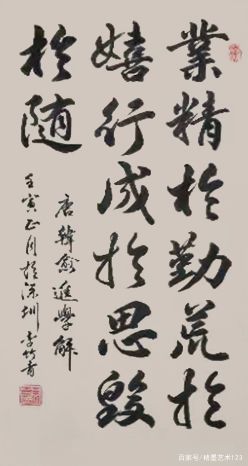 業精於勤荒於
嬉行成於思毀
於随
唐韓愈進學解
壬寅正月於深圳李竹青
百家号/精墨艺术123